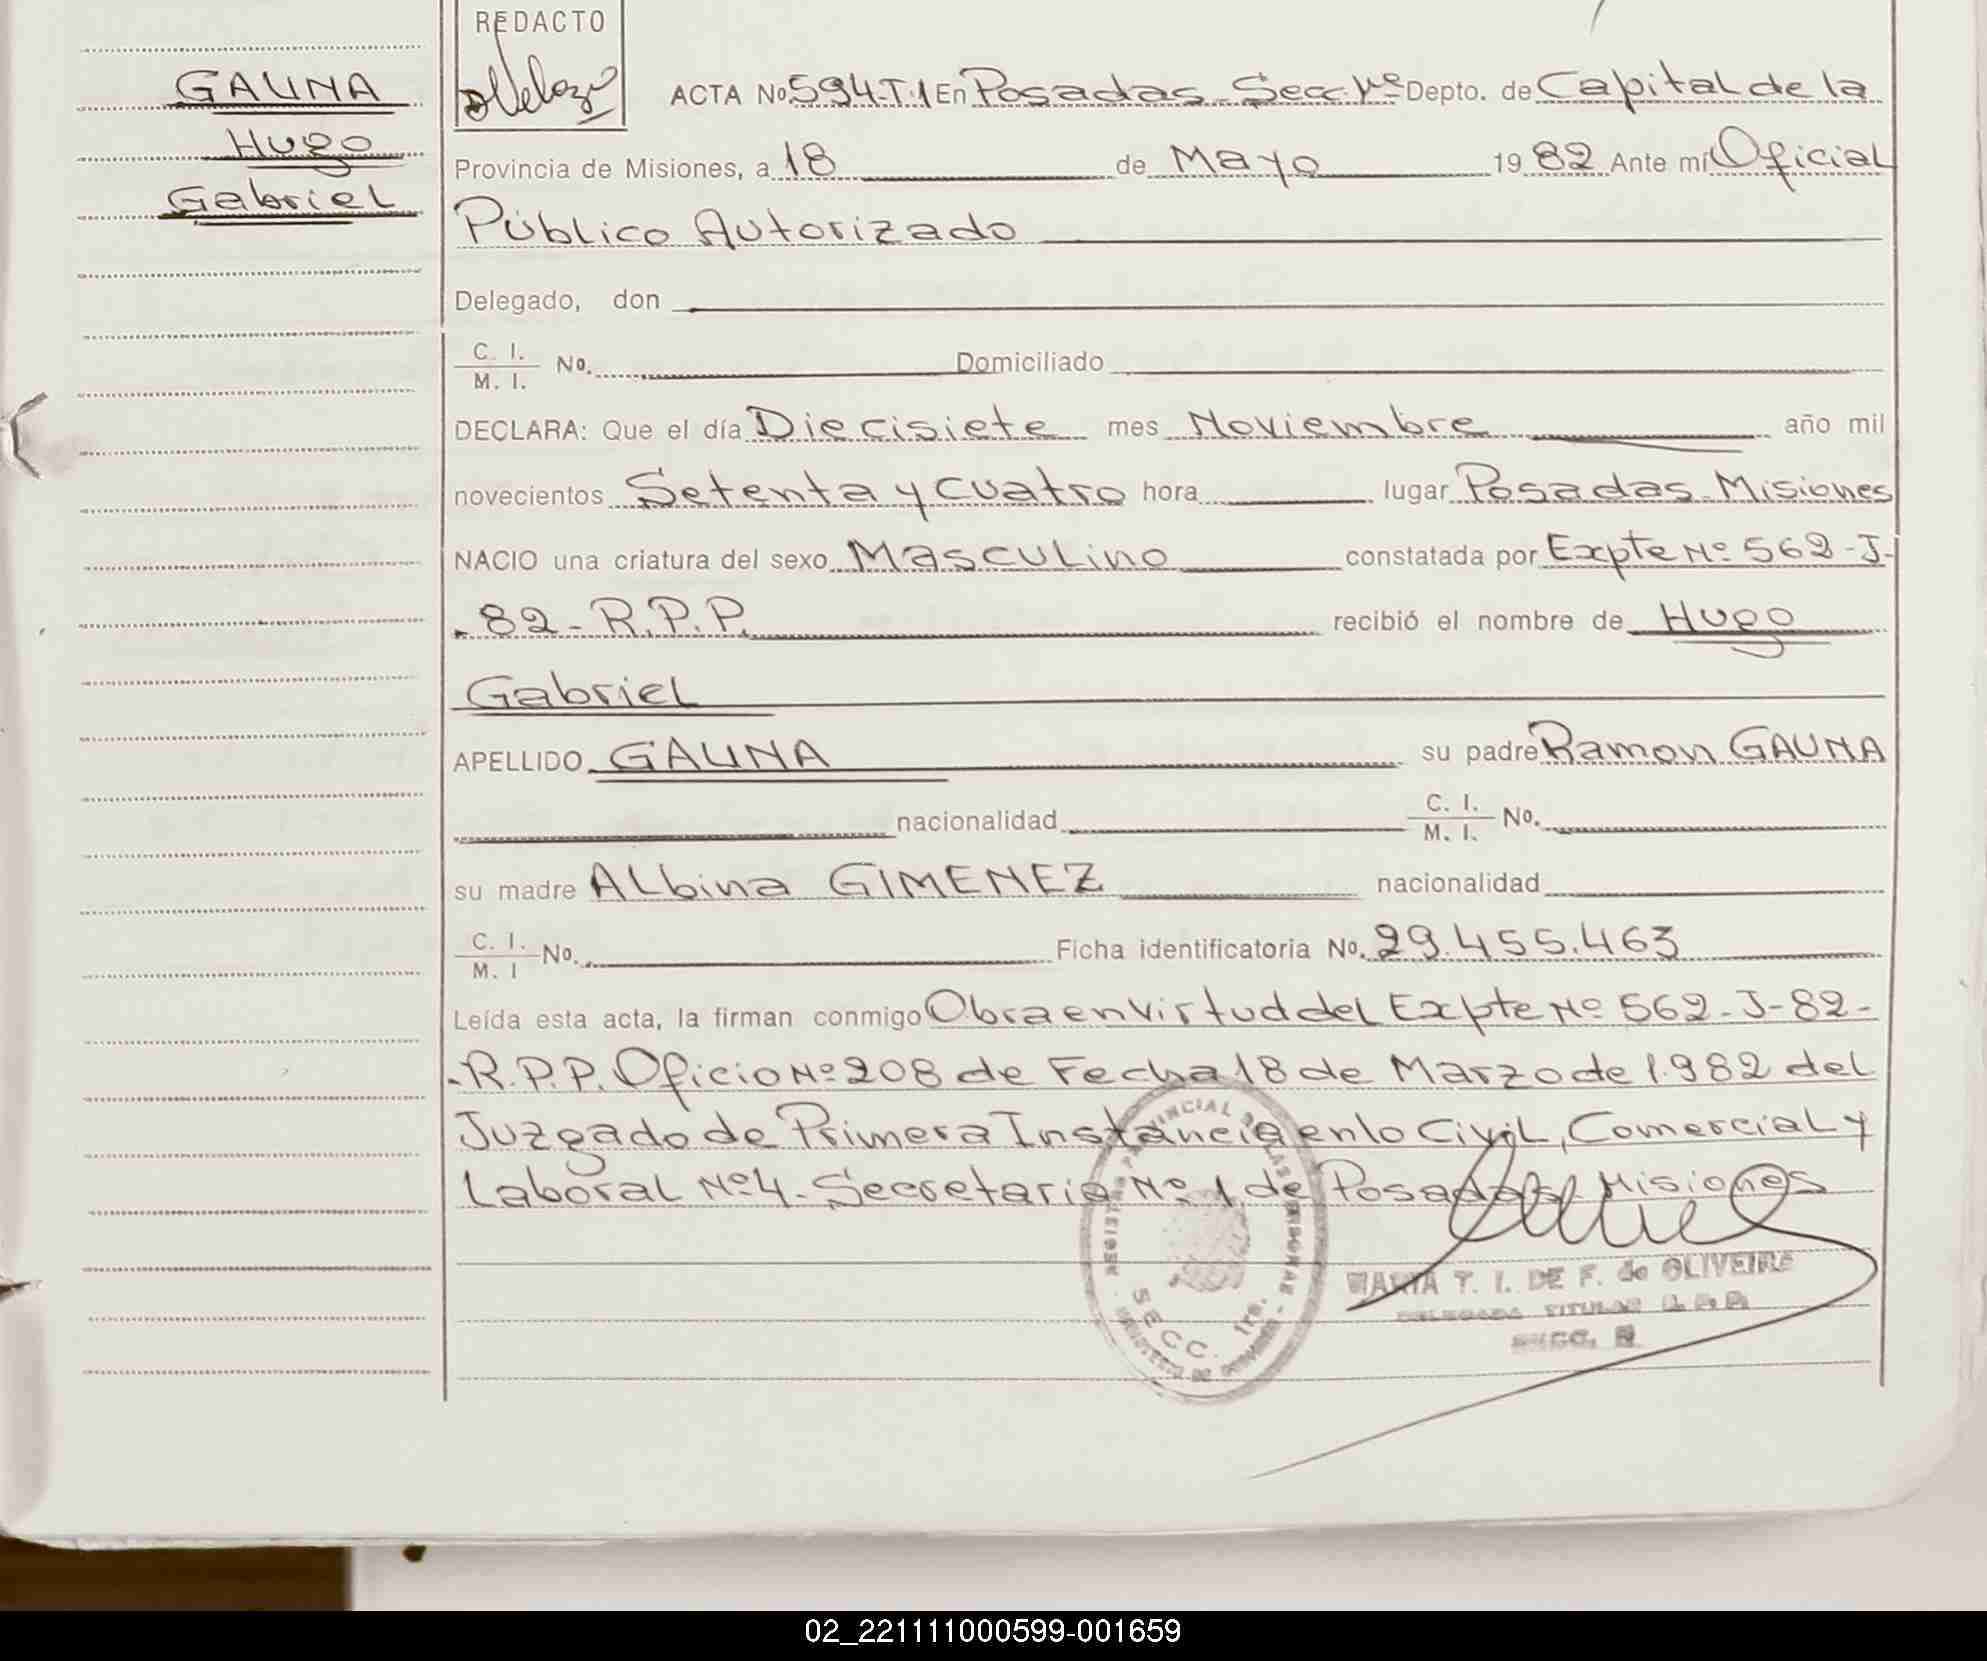 REDACTO
GAUNA
Hugo
Gabriel
ACTA No. 594-T.1 En Posadas - Secc. 1ª Depto. de Capital de la
Provincia de Misiones, a 18 de Mayo 19 82 Ante mí Oficial
Público Autorizado
Delegado, don
C. I.
M. I. No. Domiciliado
DECLARA: Que el día Diecisiete mes Noviembre año mil
novecientos Setenta y cuatro hora lugar Posadas - Misiones
NACIO una criatura del sexo Masculino constatada por Expte Nº 562-J-
-82-R.P.P. recibió el nombre de Hugo
Gabriel
APELLIDO GAUNA su padre Ramon GAUNA
nacionalidad C. I.
M. I. No.
su madre Albina GIMENEZ nacionalidad
C. I.
M. I No. Ficha identificatoria No. 29.455.463
Leída esta acta, la firman conmigo Obra en virtud del Expte Nº 562-J-82-
-R.P.P. Oficio Nº 208 de Fecha 18 de Marzo de 1.982 del
Juzgado de Primera Instancia en lo Civil, Comercial y
Laboral Nº 4 - Secretaria Nº 1, de Posadas, Misiones
REGISTRO PROVINCIAL DE LAS PERSONAS - MINISTERIO DE GOBIERNO -
SECC. 1ra.
MARIA T. I. DE F. de OLIVEIRA
DELEGADA TITULAR
SECC.
02_221111000599-001659